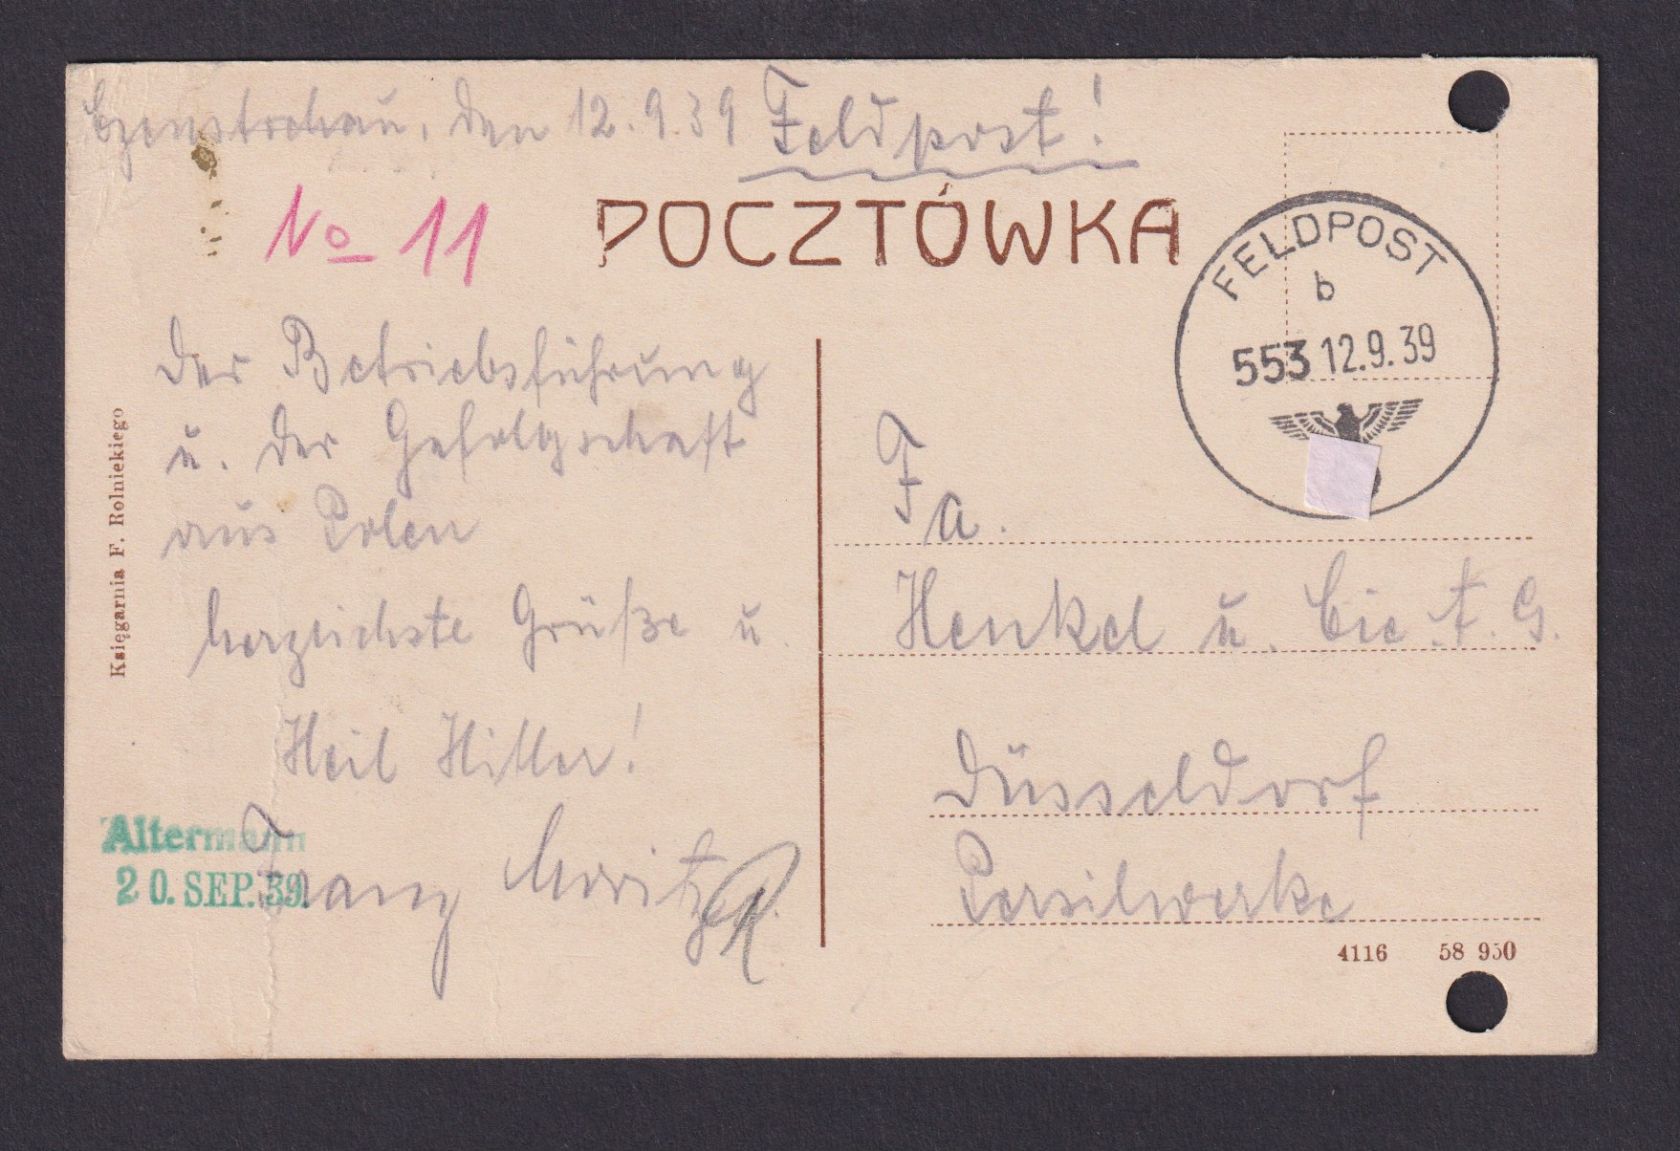 Czenstochau, den 12.9.39 Feldpost!
No 11
POCZTÓWKA
FELDPOST
b
553 12.9.39
Der Betriebsführung
u. der Gefolgschaft
aus Polen
herzlichste Grüße u.
Heil Hitler!
Franz Moritz
Altermann
20. SEP. 39.
Księgarnia F. Rolniekiego
Fa.
Henkel u. Cie. A. G.
Düsseldorf
Persilwerke
4116 58 950